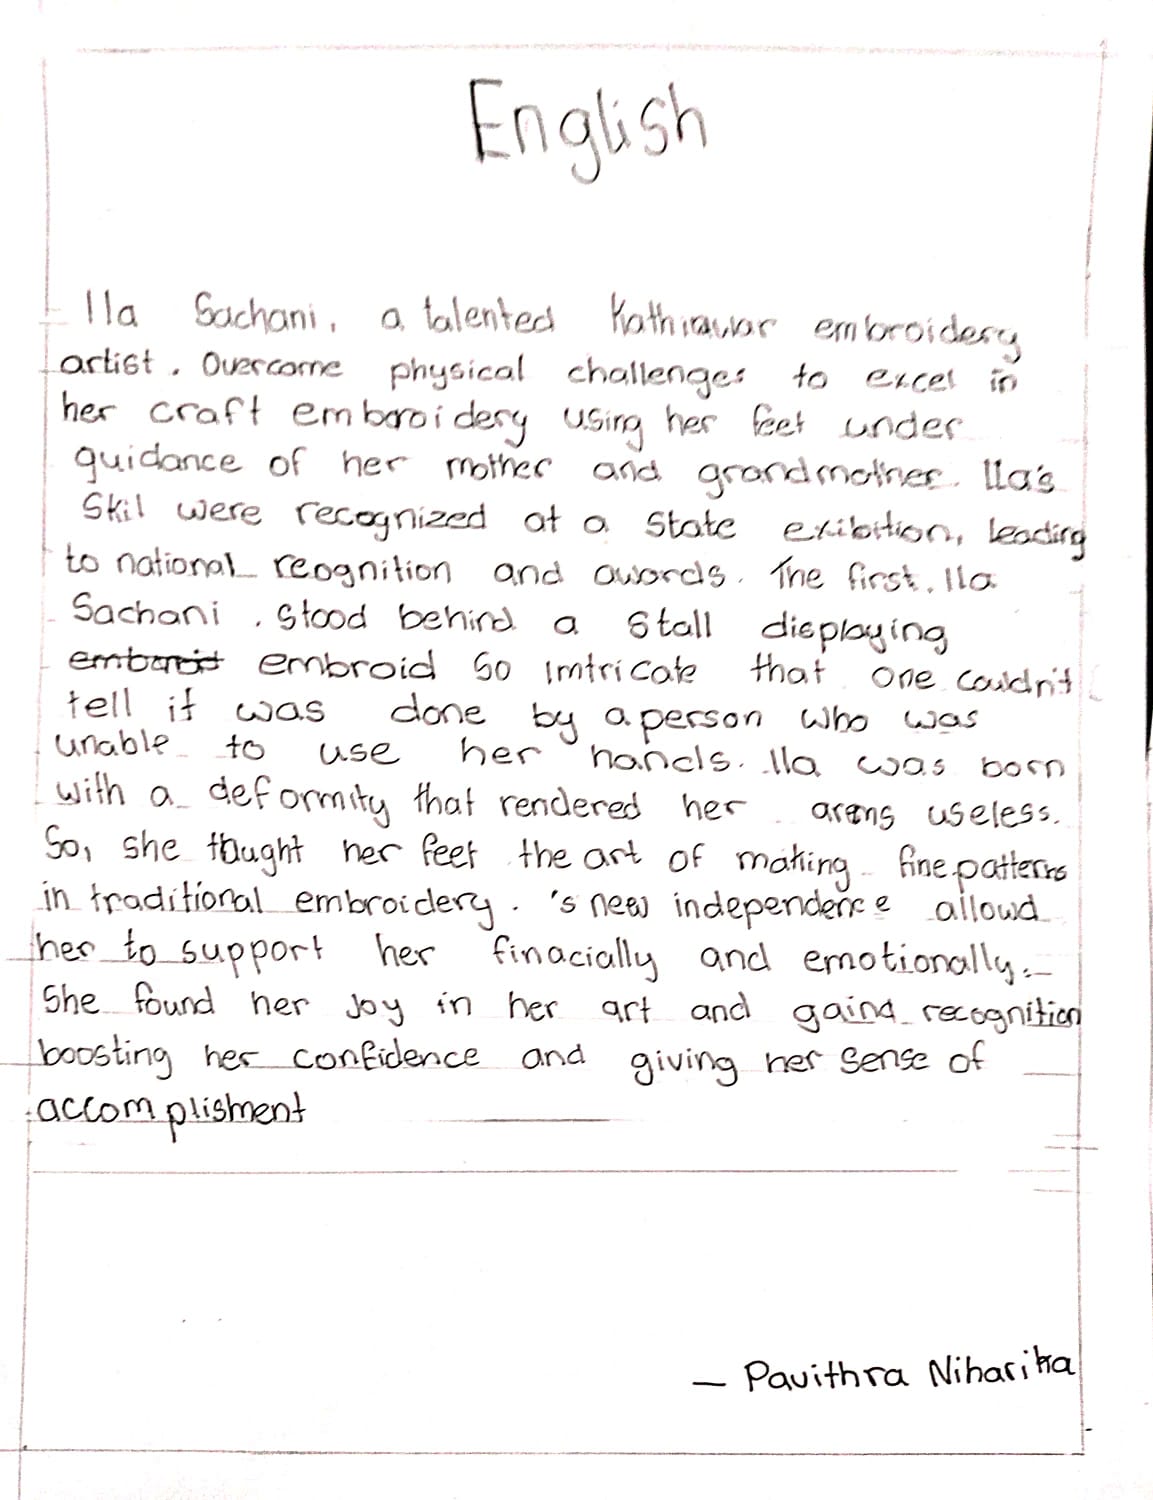 English
Ila Sachani, a talented Kathiawar embroidery
artist. Overcome physical challenges to excel in
her craft embroidery using her feet under
guidance of her mother and grandmother. Ila's
Skil were recognized at a State exibition, leading
to national reognition and awards. The first. Ila
Sachani . stood behind a stall displaying
embroid so imtricate that one couldn't
tell it was done by a person who was
unable to use her hands. Ila was born
with a deformity that rendered her arems useless.
So, she thught her feet the art of making fine patterns
in traditional embroidery. 's new independence allowd
her to support her finacially and emotionally.
She found her Joy in her art and gaind recognition
boosting her confidence and giving her sense of
accomplishment
— Pavithra Niharika